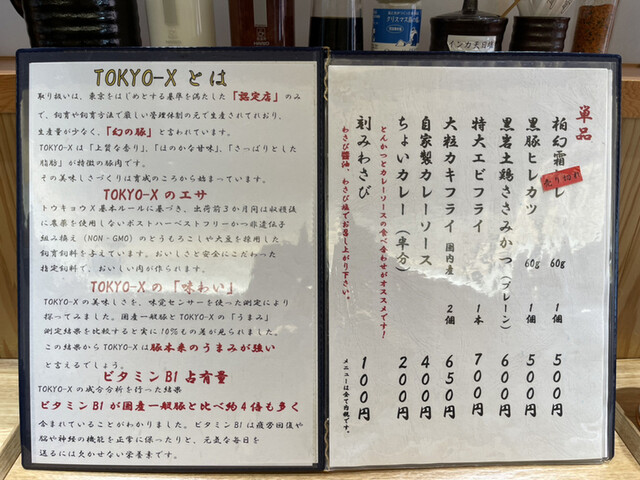 TOKYO-X とは
取り扱いは、東京をはじめとする基準を満たした「認定店」のみ
で、飼育や飼育方法で厳しい管理体制の元で生産されており、
生産量が少なく、「幻の豚」と言われています。
TOKYO-X は「上質な香り」、「ほのかな甘味」、「さっぱりとした
脂肪」が特徴の豚肉です。
その美味しさづくりは育成のころから始まっています。
TOKYO-X のエサ
トウキョウX基本ルールに基づき、出荷前3か月間は収穫後
に農薬を使用しないポストハーベストフリーかつ非遺伝子
組み換え(NON-GMO)のとうもろこしや大豆を採用した
飼育飼料を与えています。おいしさと安全にこだわった
指定飼料で、おいしい肉が作られます。
TOKYO-X の「味わい」
TOKYO-X の美味しさを、味覚センサーを使った測定により
探ってみました。国産一般豚と TOKYO-X の「うまみ」
測定結果を比較すると実に10%もの差が見られました。
この結果から TOKYO-X は豚本来のうまみが強い
と言えるでしょう。
ビタミンB1 占有量
TOKYO-X の成分分析を行った結果
ビタミンB1が国産一般豚と比べ約4倍も多く
含まれていることがわかりました。ビタミンB1は疲労回復や
脳や神経の機能を正常に保ったりと、元気な毎日を
送るには欠かせない栄養素です。
単品
柏幻霜ヒレ 60g 1個 500円
売り切れ
黒豚ヒレカツ 60g 1個 500円
黒岩土鶏ささみかつ(プレーン) 600円
特大エビフライ 1本 700円
大粒カキフライ 国内産 2個 650円
自家製カレーソース 400円
ちょいカレー(半分) 200円
とんかつとカレーソースの食べ合わせがオススメです!
刻みわさび 100円
わさび醤油、わさび塩でお召し上がり下さい。
メニューは全て内税です。
クリスマス島の塩
インカ天日塩